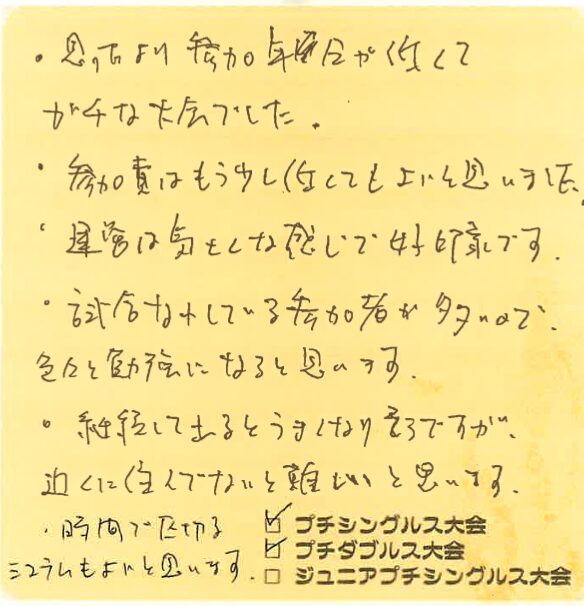 ・思ったより参加年令層が低くて
ガチな大会でした。
・参加費はもう少し低くてもよいと思いました。
・運営は気さくな感じで好印象です。
・試合なれしている参加者が多いので、
色々と勉強になると思います。
・継続して出るとうまくなりそうですが、
近くに住んでないと難しいと思います。
・時間で区切る
システムもよいと思います。
☑ プチシングルス大会
☑ プチダブルス大会
□ ジュニアプチシングルス大会